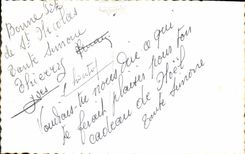 Bonne fête
de St Nicolas
Tante Simone
Thierry
Yves
Voudrais-tu nous dire ce qui
te ferait plaisir pour ton
cadeau de Noël
Tante Simone